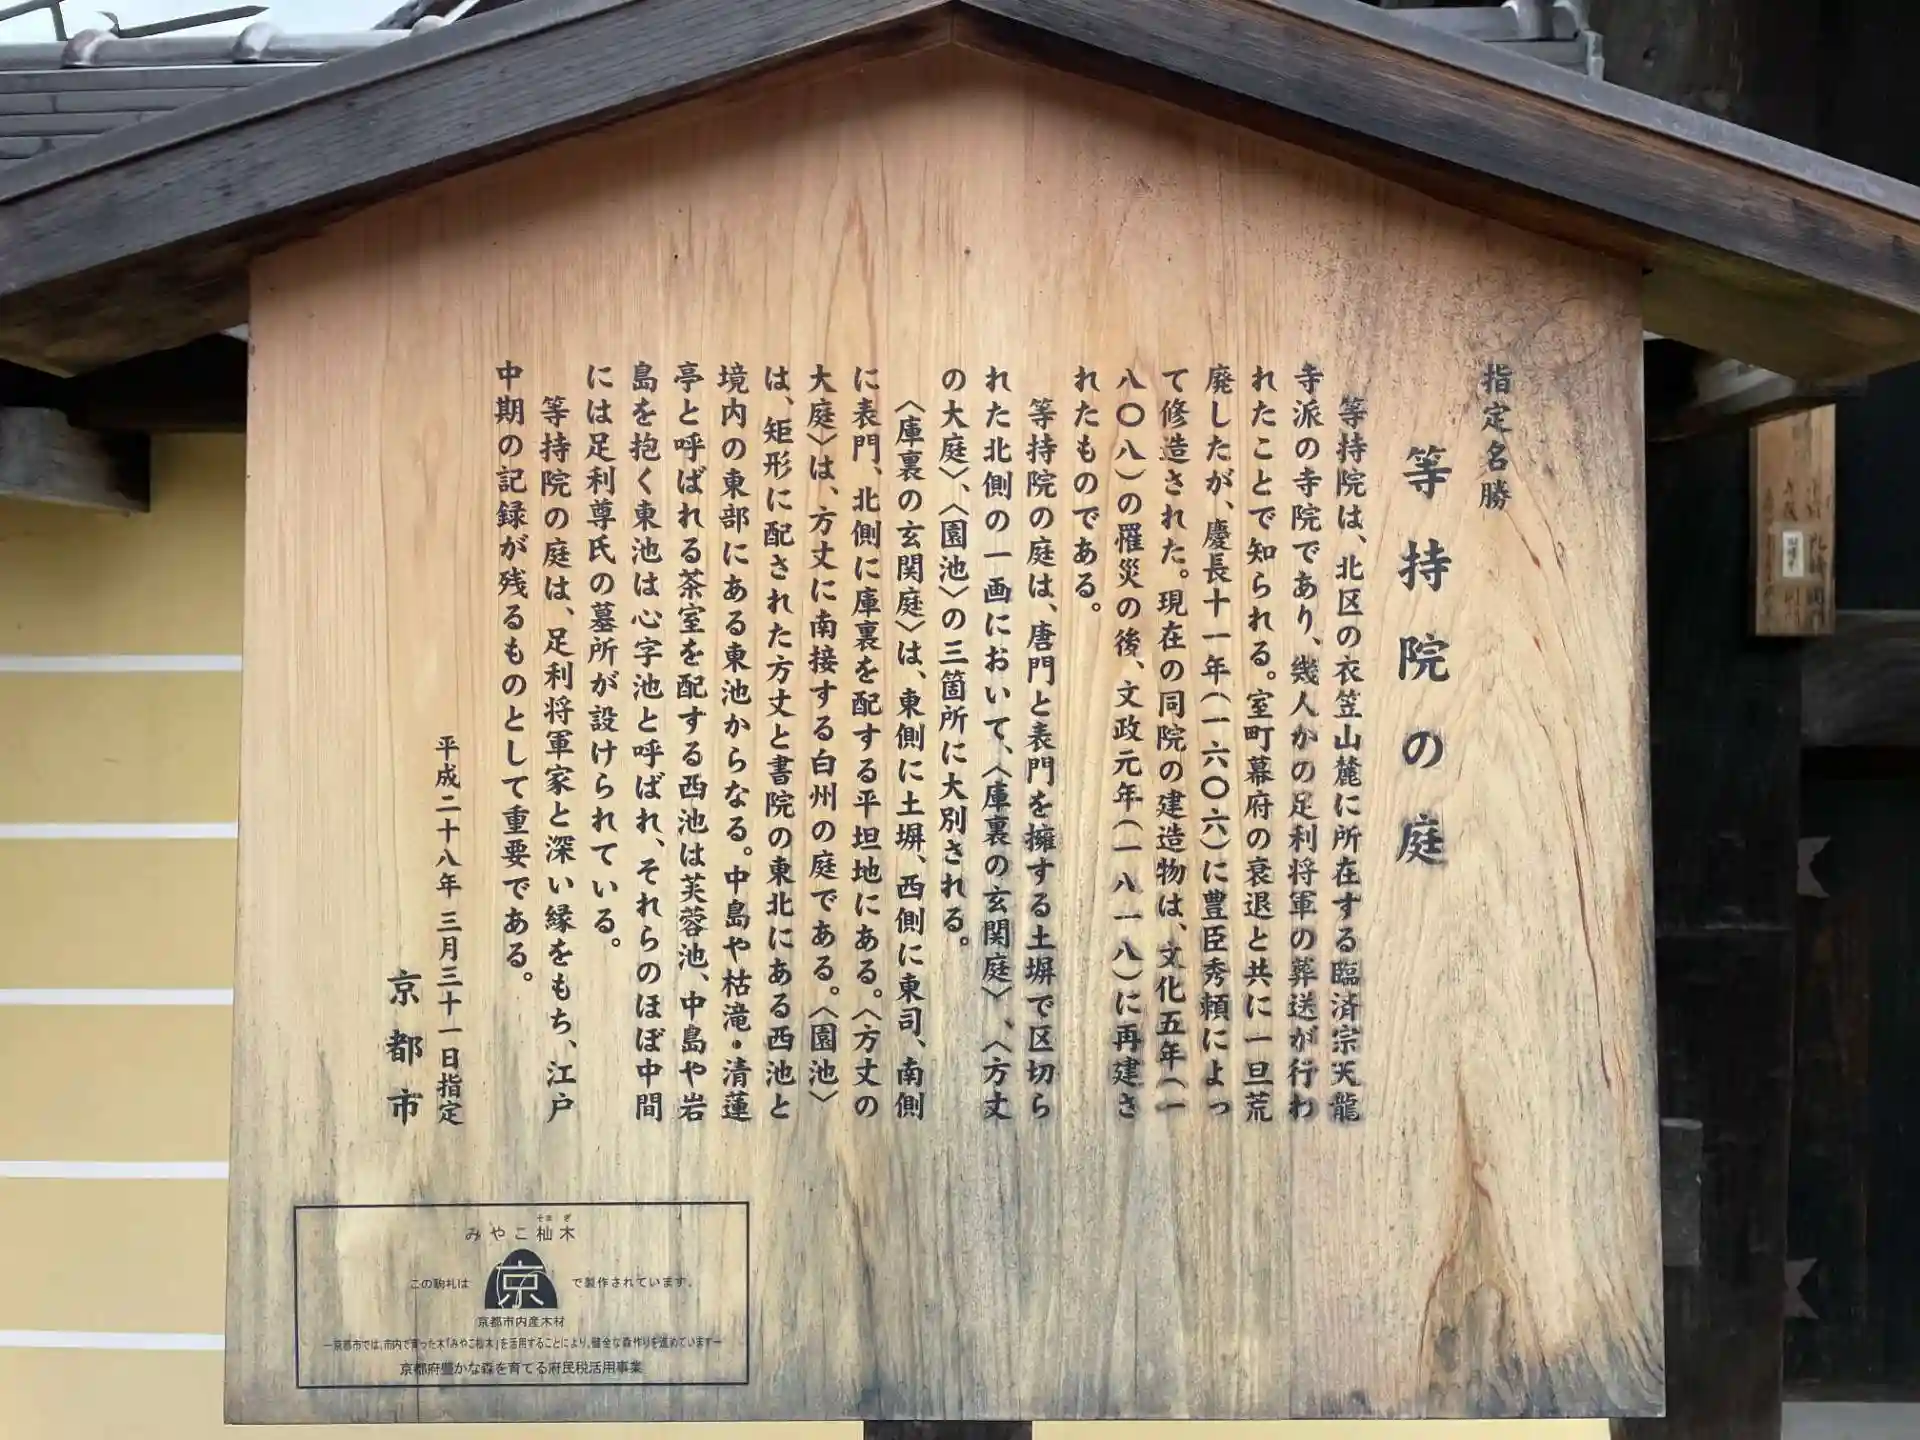 指定名勝
等持院の庭
等持院は、北区の衣笠山麓に所在する臨済宗天龍
寺派の寺院であり、幾人かの足利将軍の葬送が行わ
れたことで知られる。室町幕府の衰退と共に一旦荒
廃したが、慶長十一年(一六〇六)に豊臣秀頼によっ
て修造された。現在の同院の建造物は、文化五年(一
八〇八)の罹災の後、文政元年(一八一八)に再建さ
れたものである。
等持院の庭は、唐門と表門を擁する土塀で区切ら
れた北側の一画において、〈庫裏の玄関庭〉、〈方丈
の大庭〉、〈園池〉の三箇所に大別される。
〈庫裏の玄関庭〉は、東側に土塀、西側に東司、南側
に表門、北側に庫裏を配する平坦地にある。〈方丈の
大庭〉は、方丈に南接する白州の庭である。〈園池〉
は、矩形に配された方丈と書院の東北にある西池と
境内の東部にある東池からなる。中島や枯滝・清蓮
亭と呼ばれる茶室を配する西池は芙蓉池、中島や岩
島を抱く東池は心字池と呼ばれ、それらのほぼ中間
には足利尊氏の墓所が設けられている。
等持院の庭は、足利将軍家と深い縁をもち、江戸
中期の記録が残るものとして重要である。
平成二十八年 三月三十一日指定
京都市
みやこ杣木
そまぎ
この駒札は 京 で製作されています。
京都市内産木材
―京都市では、市内で育った木「みやこ杣木」を活用することにより、健全な森作りを進めています―
京都府豊かな森を育てる府民税活用事業